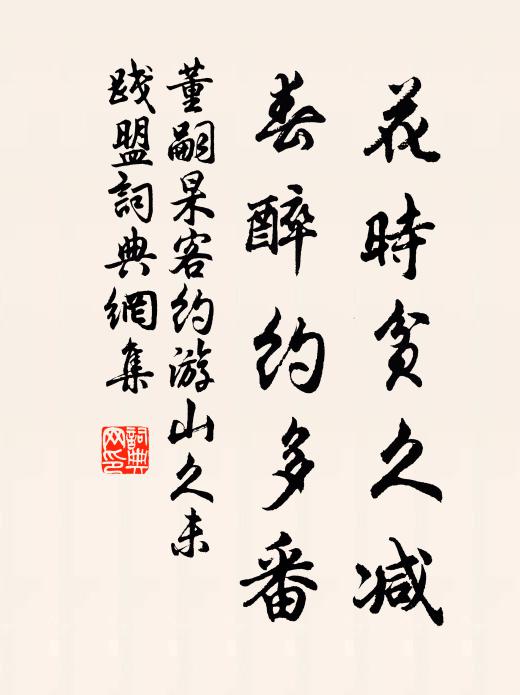 花時貧久減
春醉約多番
董嗣杲客約游山久未
踐盟詞典網集
詞典
网印